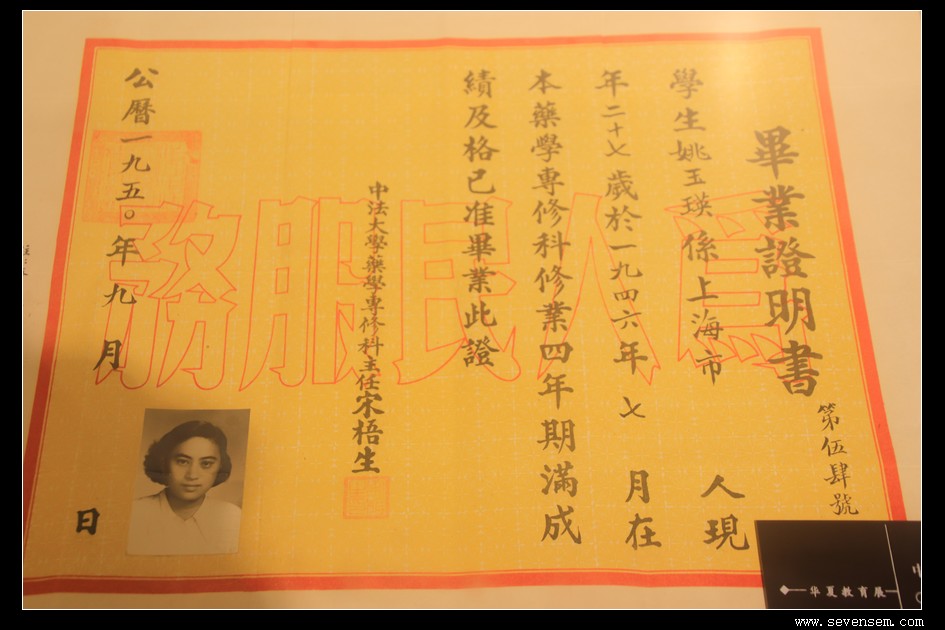 畢業證明書
第伍肆號
學生姚玉瑛係上海市 人現
年二十七歲於一九四六年七 月在
本藥學專修科修業四年期滿成
績及格已准畢業此證
中法大學藥學專修科主任宋梧生
公曆一九五〇年九月 日
為人民服務
華夏教育展
www.sevensem.com